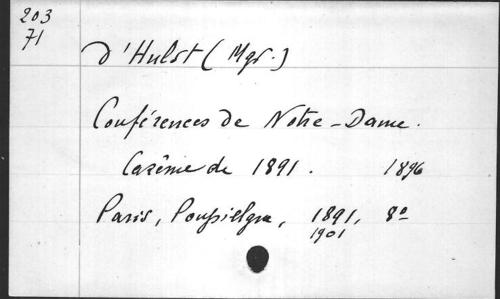 203
71
D'Hulst (Mgr.)
Conférences de Notre-Dame.
Carême de 1891. 1896
Paris, Poussielgue, 1891, 8º
1901